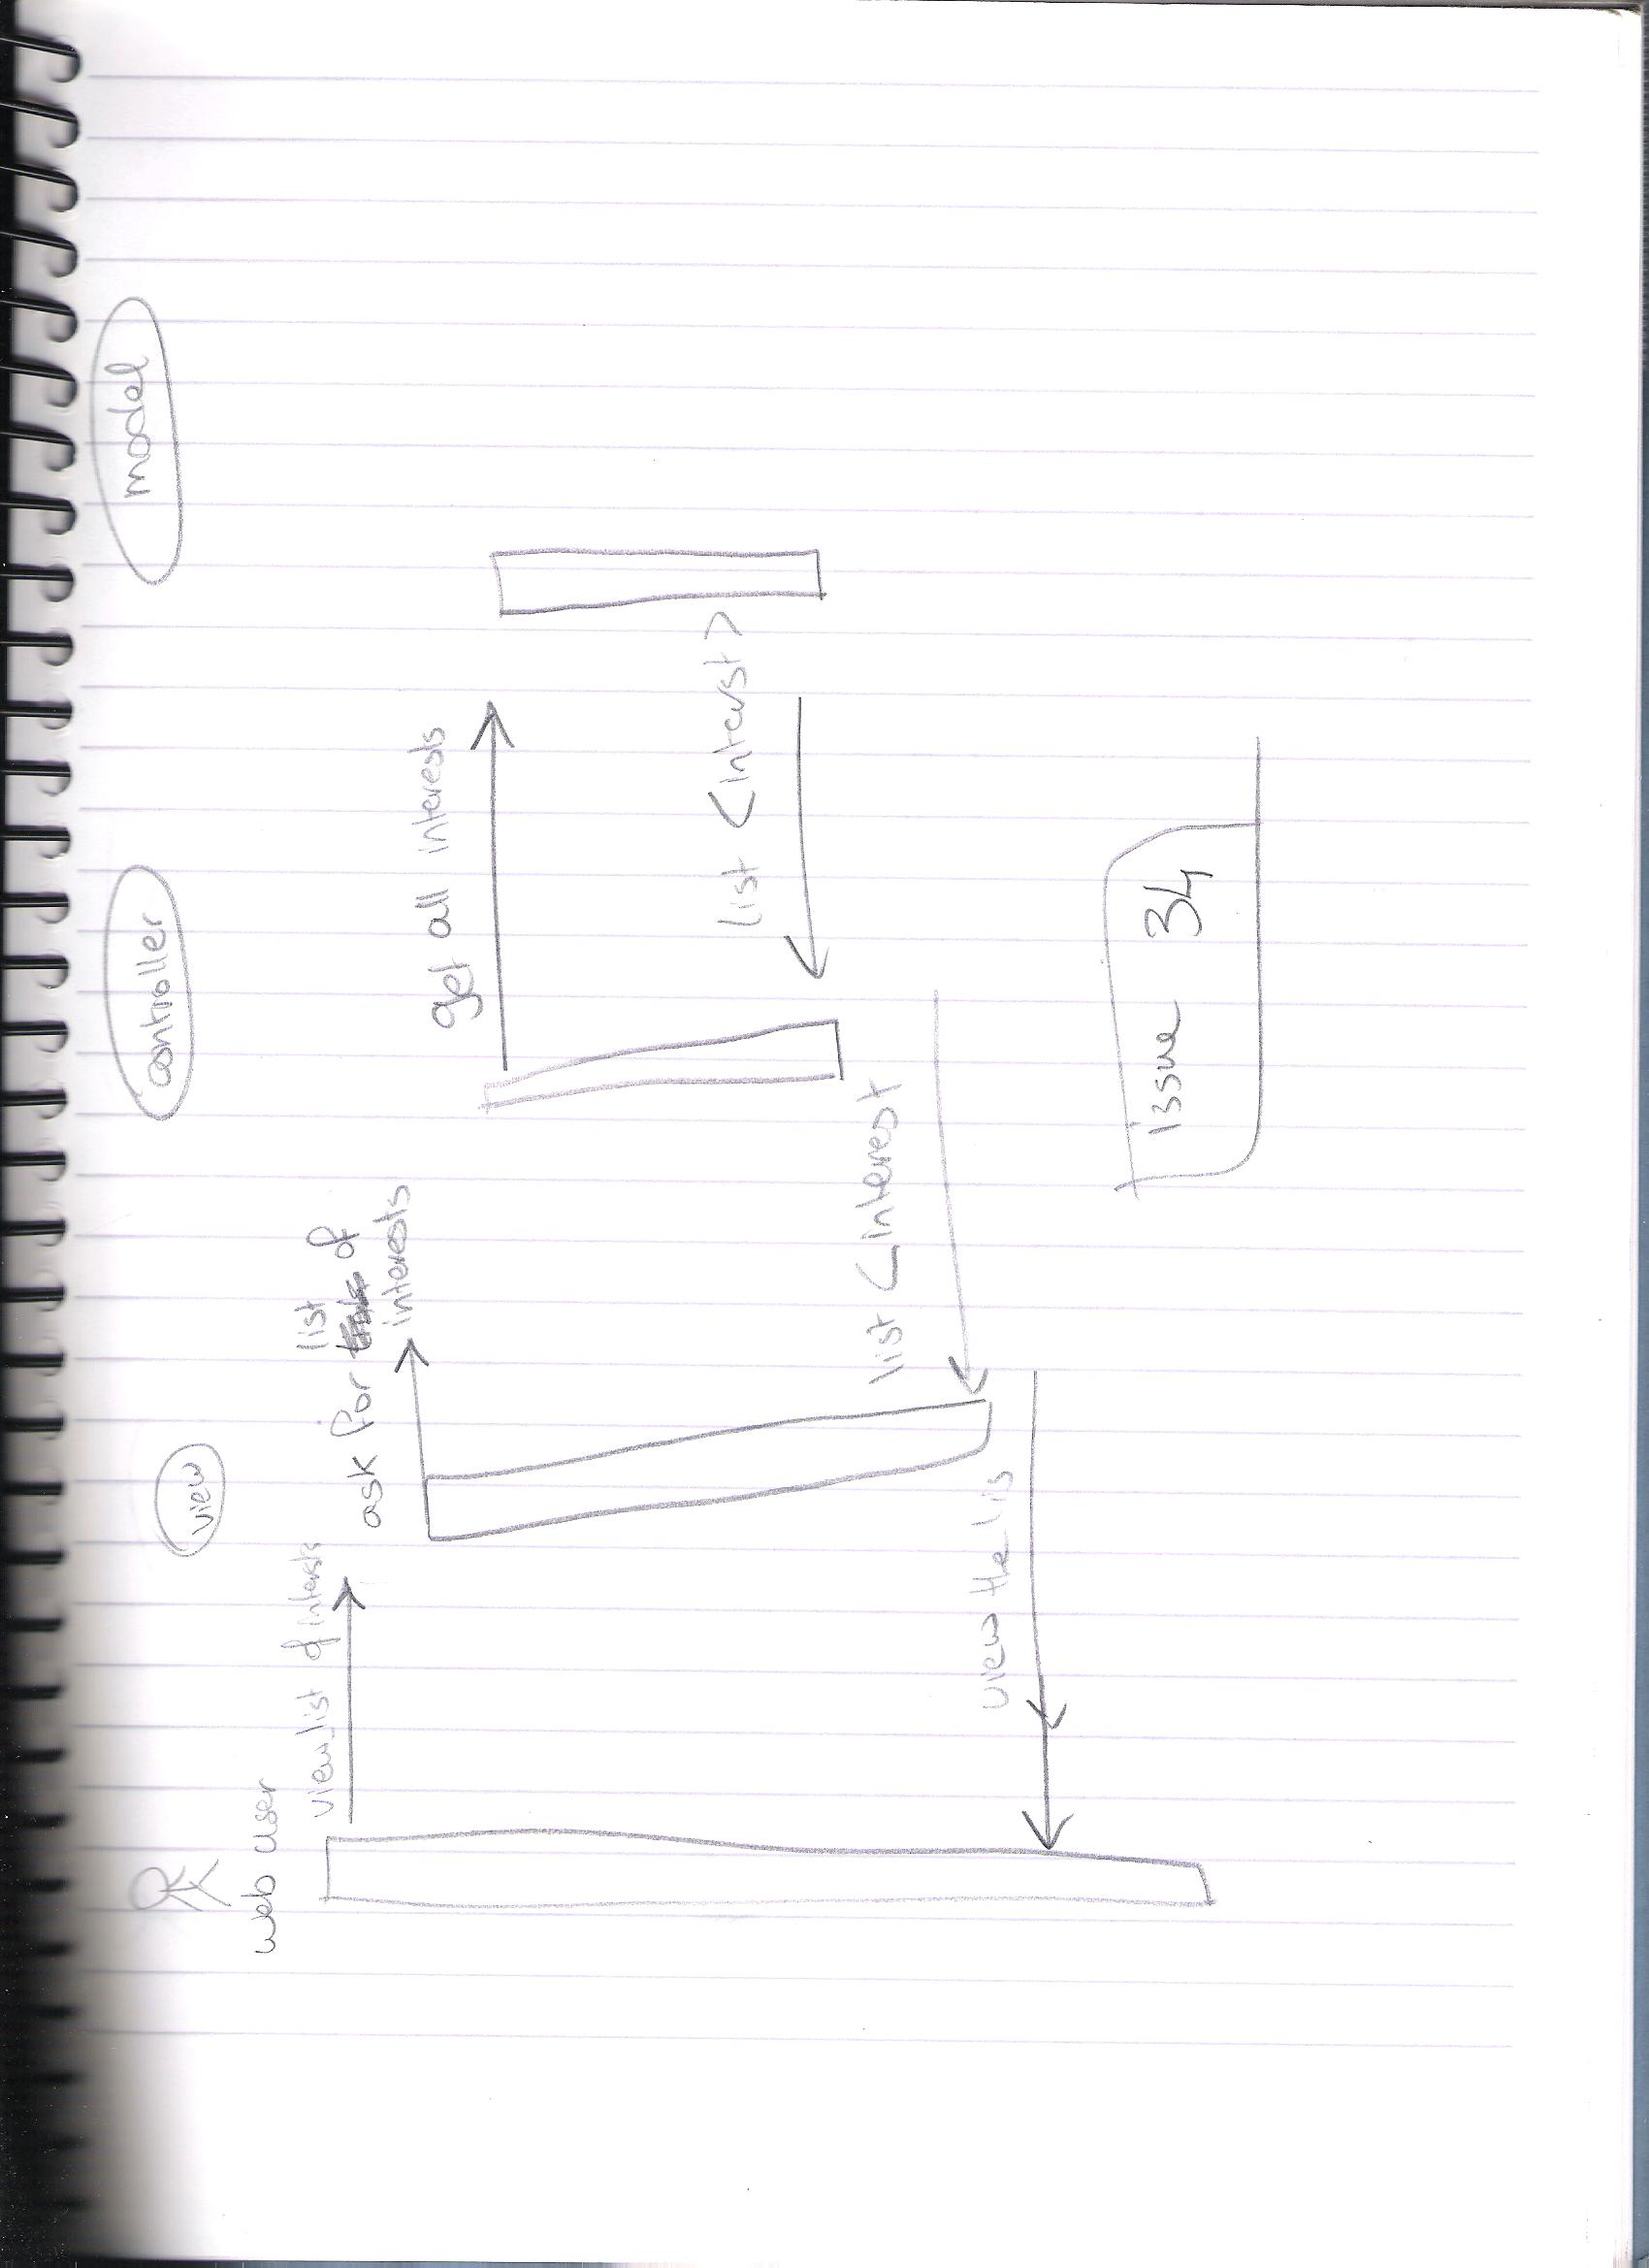 web user
view
controller
model
view list of interests
ask for list of
interests
get all interests
List <Interst>
list <interest
view the lis
issue 34